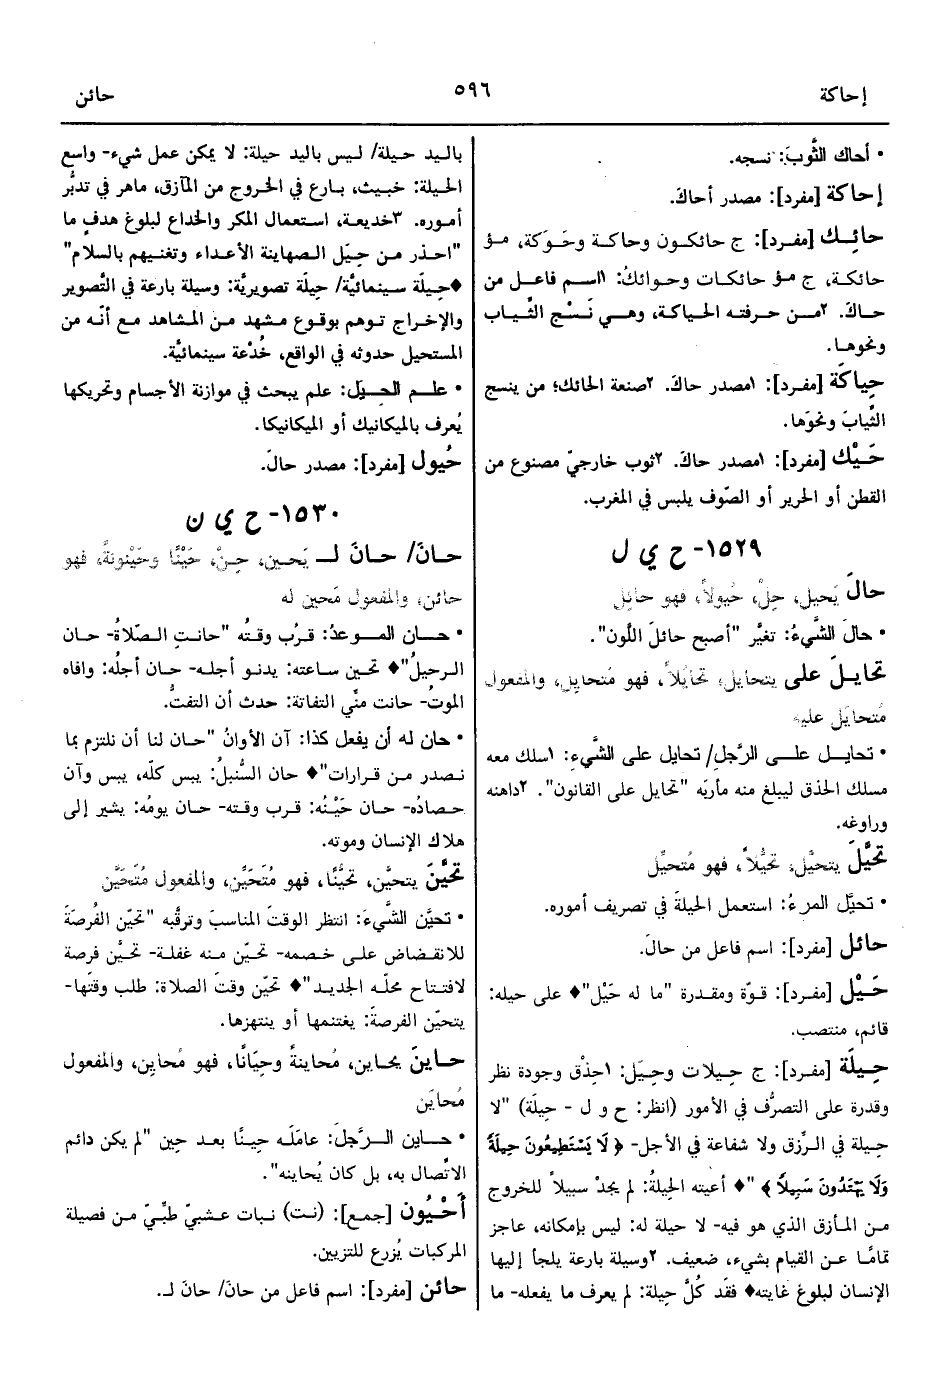 إحاكة
٥٩٦
حائن
• أحاك الثَّوبَ: نسجه.
إحاكة [مفرد]: مصدر أحاكَ.
حائِك [مفرد]: ج حائكون وحاكة وحَوَكة، مؤ
حائكة، ج مؤ حائكات وحوائكُ: ١اسم فاعل من
حاكَ. ٢من حرفته الحياكة، وهي نَسْج الثِّياب
ونحوها.
حِياكَة [مفرد]: ١مصدر حاكَ. ٢صنعة الحائك؛ من ينسج
الثِّيابَ ونحوَها.
حَيْك [مفرد]: ١مصدر حاكَ. ٢ثوب خارجيّ مصنوع من
القطن أو الحرير أو الصّوف يلبس في المغرب.
١٥٢٩- ح ي ل
حالَ يَحيل، حِلْ، حُيولاً، فهو حايِل
• حالَ الشَّيءُ: تغيَّر "أصبح حائلَ اللّون".
تحايلَ على يتحايل، تحايُلاً، فهو مُتحايِل، والمفعول
مُتحايَل عليه
• تحايـل علـى الرَّجل/ تحايل على الشَّيءِ: ١سلك معه
مسلك الحذق ليبلغ منه مأربَه "تحايل على القانون". ٢داهنه
وراوغه.
تحيَّلَ يتحيَّل، تحيُّلاً، فهو مُتحيِّل
• تحيَّل المرءُ: استعمل الحيلةَ في تصريف أموره.
حائل [مفرد]: اسم فاعل من حالَ.
حَيْل [مفرد]: قوّة ومقدرة "ما له حَيْل"♦ على حيله:
قائم، منتصب.
حِيلَة [مفرد]: ج حِيلات وحِيَل: ١حِذْق وجودة نظر
وقدرة على التصرُّف في الأمور (انظر: ح و ل - حِيلَة) "لا
حِيلة في الرِّزق ولا شفاعة في الأجل- ﴿ لَا يَسْتَطِيعُونَ حِيلَةً
وَلَا يَهْتَدُونَ سَبِيلاً ﴾ "♦ أعيته الحيلةُ: لم يجدْ سبيلاً للخروج
من المأزق الذي هو فيه- لا حيلة له: ليس بإمكانه، عاجز
تمامًا عن القيام بشيء، ضعيف. ٢وسيلة بارعة يلجأ إليها
الإنسان لبلوغ غايته♦ فقَد كُلَّ حِيلة: لم يعرف ما يفعله- ما
باليد حيلة/ ليس باليد حيلة: لا يمكن عمل شيء- واسع
الحيلة: خبيث، بارع في الخروج من المآزق، ماهر في تدبُّر
أموره. ٣خديعة، استعمال المكر والخداع لبلوغ هدفٍ ما
"احذر من حِيَل الصهاينة الأعداء وتغنيهم بالسلام"
♦حِيلَة سينمائيَّة/ حِيلة تصويريَّة: وسيلة بارعة في التَّصوير
والإخراج توهم بوقوع مشهد من المشاهد مع أنّه من
المستحيل حدوثه في الواقع، خُدْعة سينمائيَّة.
• علـم الحِيَل: علم يبحث في موازنة الأجسام وتحريكها
يُعرف بالميكانيك أو الميكانيكا.
حُيول [مفرد]: مصدر حالَ.
١٥٣٠- ح ي ن
حانَ/ حانَ لـ يَحـين، حِـنْ، حَيْنًا وحَيْنونةً، فهو
حائن، والمفعول مَحين له
• حـان المـوعدُ: قـرُب وقتُه "حانتِ الصّلاةُ- حان
الرحيلُ"♦ تحين ساعته: يدنو أجله- حان أجلُه: وافاه
الموتُ- حانت منّي التفاتة: حدث أن التفتُّ.
• حان له أن يفعل كذا: آن الأوانُ "حـان لنا أن نلتزم بما
نصدر من قرارات"♦ حان السُّنبلُ: يبس كلّه، يبس وآن
حصادُه- حـان حَيْنُه: قرب وقته- حان يومُه: يشير إلى
هلاك الإنسان وموته.
تحيَّنَ يتحيَّن، تحيُّنًا، فهو مُتَحَيِّن، والمفعول مُتَحَيَّن
• تحيَّن الشَّيءَ: انتظر الوقتَ المناسبَ وترقَّبه "تحيّن الفُرصةَ
للانقـضاض على خـصمه- تحيَّن منه غفلة- تحيَّن فرصة
لافتتاح محلّه الجديد"♦ تحيّن وقتَ الصلاة: طلب وقتَها-
يتحيّن الفرصةَ: يغتنمها أو ينتهزها.
حايـنَ يحاين، مُحاينةً وحِيَانًا، فهو مُحايِن، والمفعول
مُحايَن
• حـاين الـرَّجلَ: عامَلَه حِينًا بعد حِين "لم يكن دائم
الاتِّصال به، بل كان يُحاينه".
أُحْيُون [جمع]: (نت) نبات عشبيّ طبِّيّ من فصيلة
المركبات يُزرع للتزيين.
حائن [مفرد]: اسم فاعل من حانَ/ حانَ لـ.